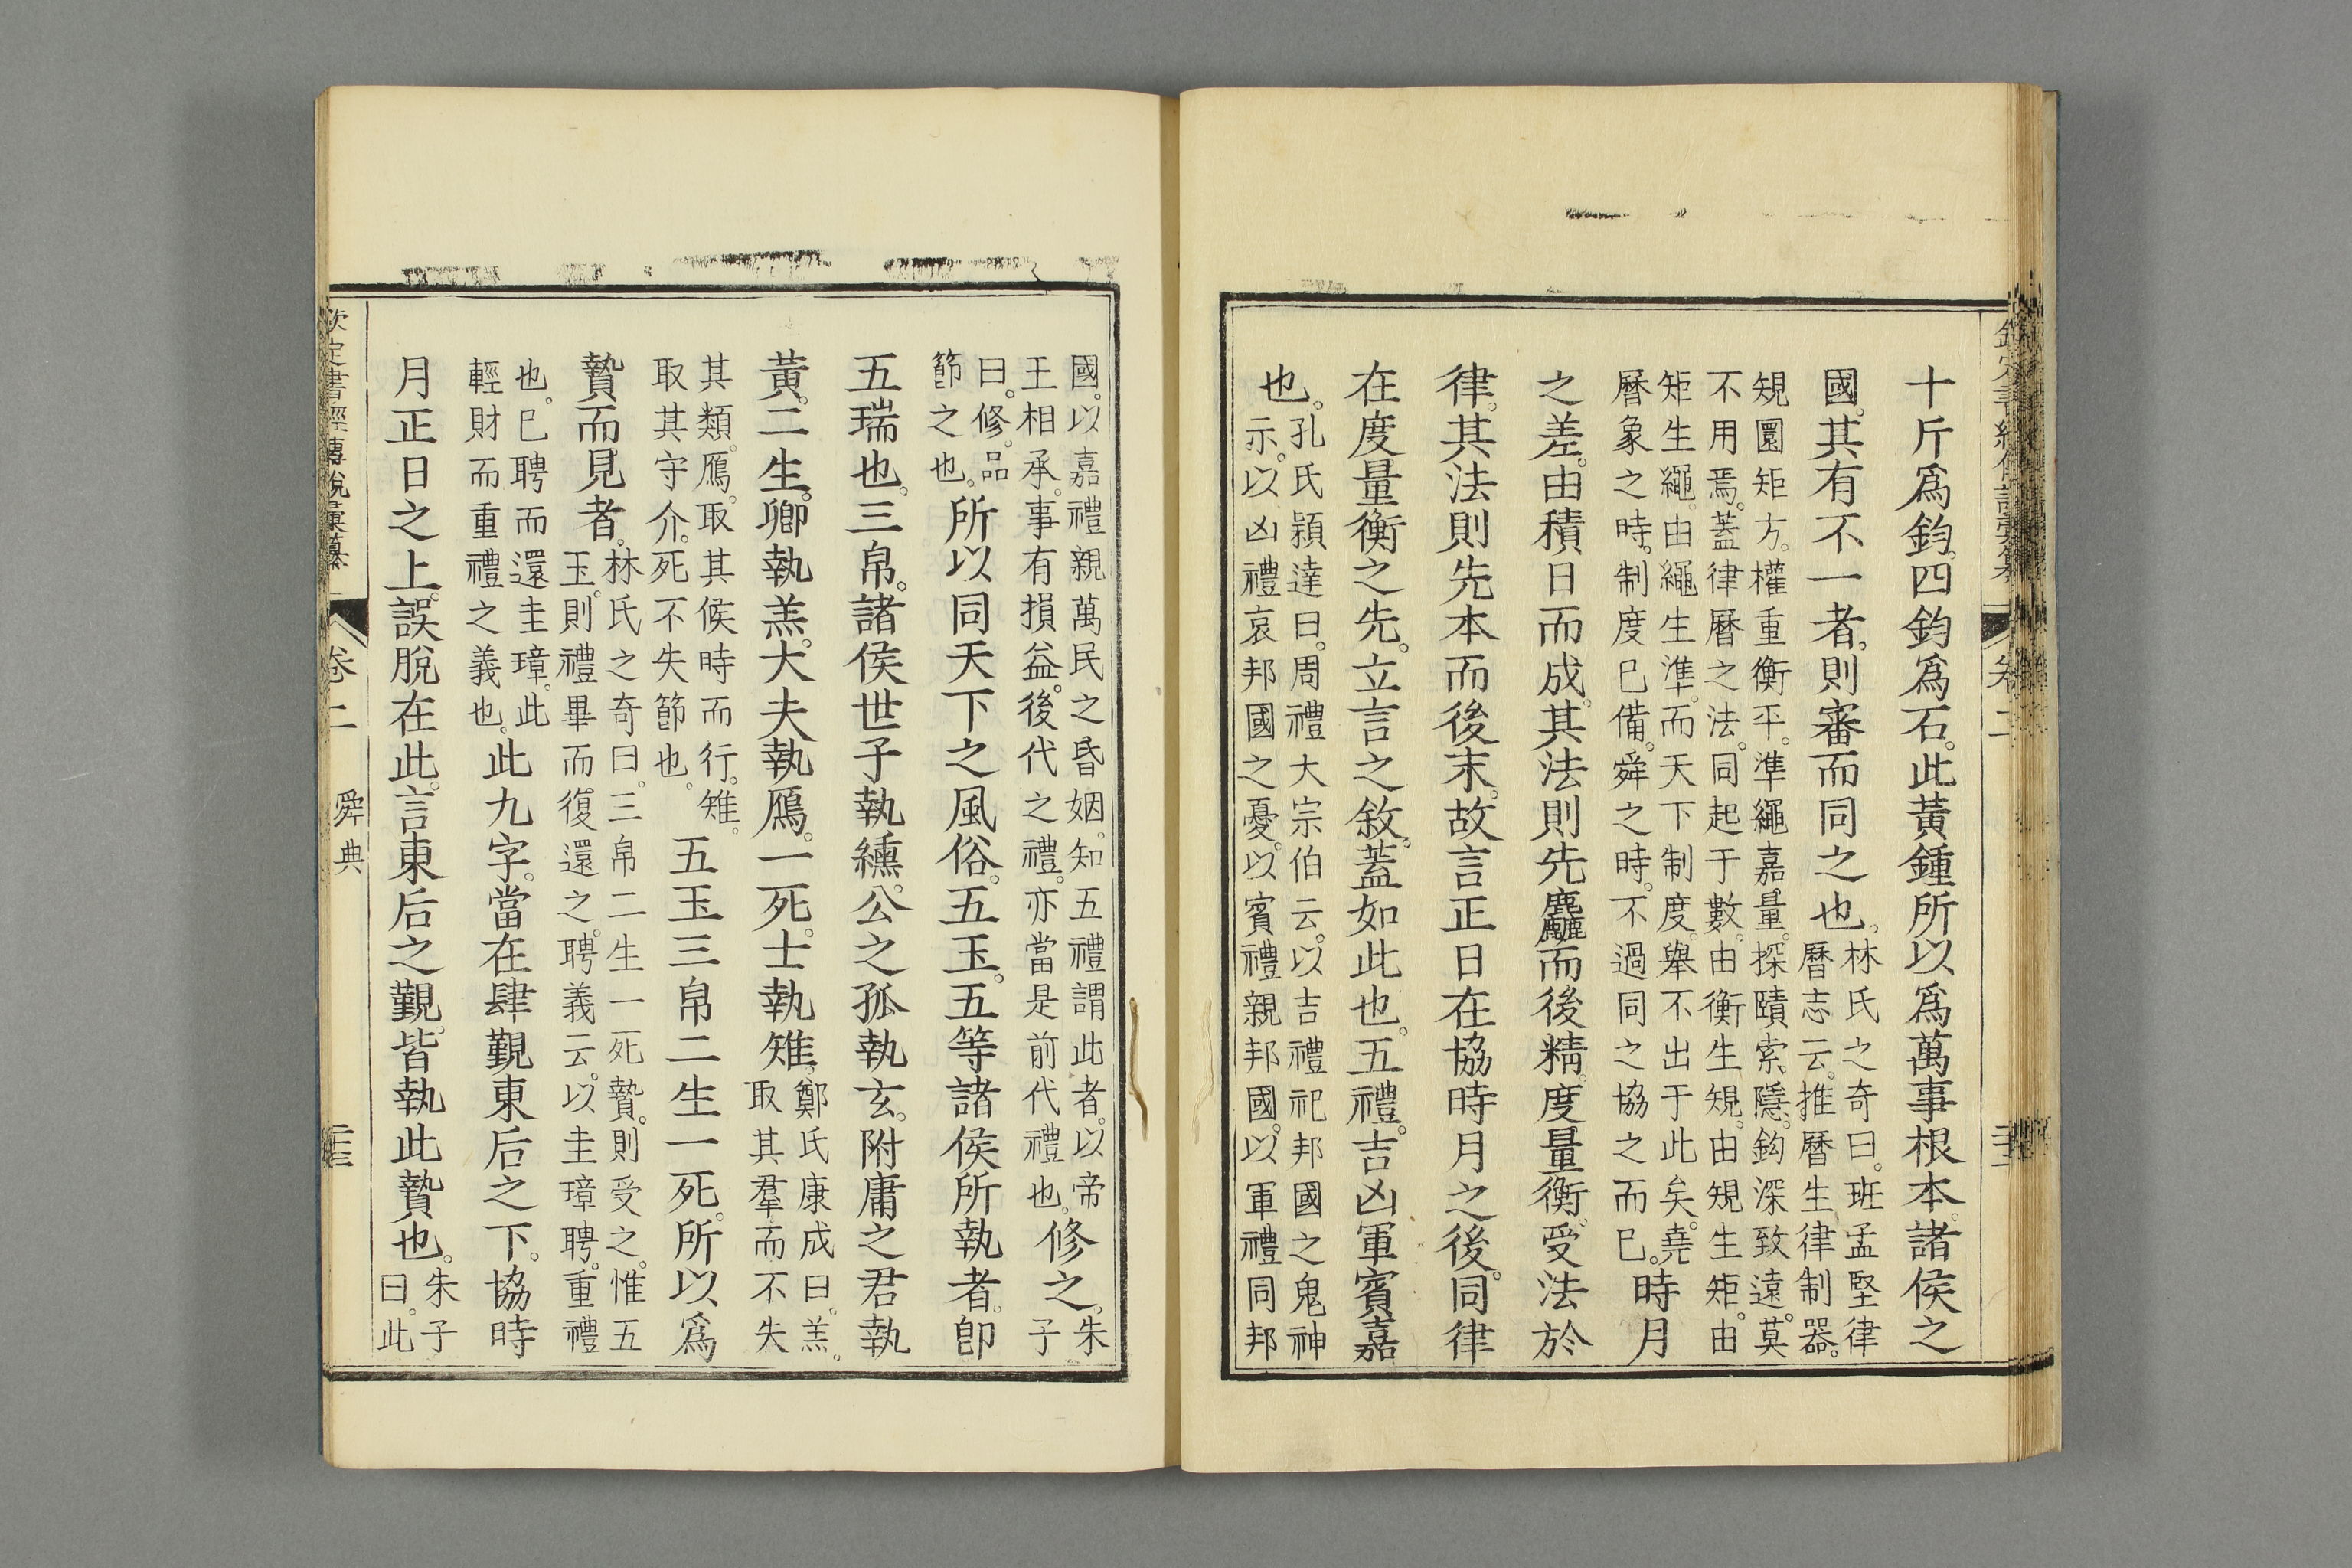 十斤爲鈞。四鈞爲石。此黃鍾所以爲萬事根本。諸侯之
國。其有不一者。則審而同之也。林氏之奇曰。班孟堅律
曆志云。推曆生律制器。
規圜矩方。權重衡平。準繩嘉量。探賾索隱。鈎深致遠。莫
不用焉。蓋律曆之法。同起于數。由衡生規。由規生矩。由
矩生繩。由繩生準。而天下制度。舉不出于此矣。堯
曆象之時。制度已備。舜之時。不過同之協之而已。時月
之差。由積日而成。其法則先麤而後精。度量衡。受法於
律。其法則先本而後末。故言正日在協時月之後。同律
在度量衡之先。立言之敘。蓋如此也。五禮。吉凶軍賓嘉
也。孔氏穎達曰。周禮大宗伯云。以吉禮祀邦國之鬼神
示。以凶禮哀邦國之憂。以賓禮親邦國。以軍禮同邦
國。以嘉禮親萬民之昏姻。知五禮謂此者。以帝
王相承。事有損益。後代之禮。亦當是前代禮也。修之。朱
子
曰。修。品
節之也。所以同天下之風俗。五玉。五等諸侯所執者。卽
五瑞也。三帛。諸侯世子執纁。公之孤執玄。附庸之君執
黃。二生。卿執羔。大夫執鴈。一死。士執雉。鄭氏康成曰。羔。
取其羣而不失
其類。鴈。取其候時而行。雉。
取其守介。死不失節也。五玉三帛二生一死。所以爲
贄而見者。林氏之奇曰。三帛二生一死贄。則受之。惟五
玉。則禮畢而復還之。聘義云。以圭璋聘。重禮
也。已聘而還圭璋。此
輕財而重禮之義也。此九字。當在肆覲東后之下。協時
月正日之上。誤脫在此。言東后之覲。皆執此贄也。朱子
曰。此
欽定書經傳說彙纂
卷二
舜典
三十三